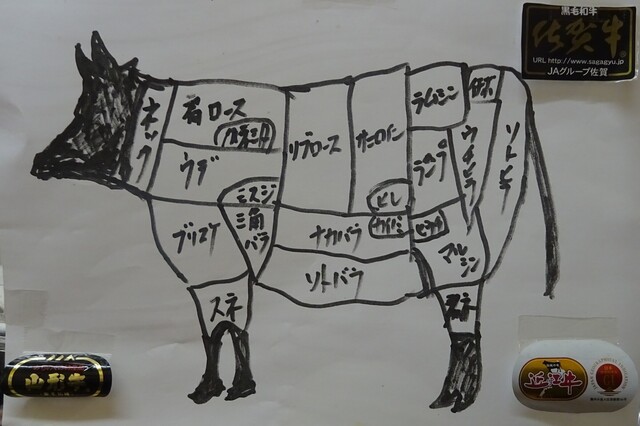 黒毛和牛
佐賀牛
URL http://www.sagagyu.jp
JAグループ佐賀
ネック
肩ロース
ウデ
ミスジ
三角
バラ
ブリスケ
スネ
リブロース
サーロイン
ヒレ
ナカバラ
カイノミ
ソトバラ
ラムシン
ランプ
ウチヒラ
ソトヒラ
マル
シン
スネ
山形牛
近江牛